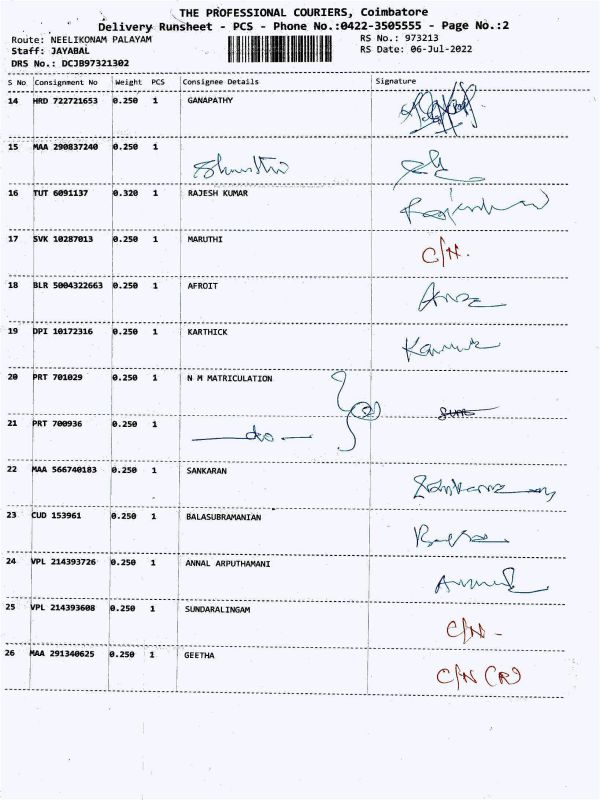 THE PROFESSIONAL COURIERS, Coimbatore
Delivery Runsheet - PCS - Phone No.:0422-3505555 - Page No.:2
Route: NEELIKONAM PALAYAM
Staff: JAYABAL
DRS No.: DCJB97321302
RS No.: 973213
RS Date: 06-Jul-2022
S No Consignment No Weight PCS Consignee Details Signature
14 HRD 722721653 0.250 1 GANAPATHY
15 MAA 290837240 0.250 1
16 TUT 6091137 0.320 1 RAJESH KUMAR
17 SVK 10287013 0.250 1 MARUTHI C/N.
18 BLR 5004322663 0.250 1 AFROIT
19 DPI 10172316 0.250 1 KARTHICK
20 PRT 701029 0.250 1 N M MATRICULATION
21 PRT 700936 0.250 1 do
22 MAA 566740183 0.250 1 SANKARAN
23 CUD 153961 0.250 1 BALASUBRAMANIAN
24 VPL 214393726 0.250 1 ANNAL ARPUTHAMANI
25 VPL 214393608 0.250 1 SUNDARALINGAM C/N -
26 MAA 291340625 0.250 1 GEETHA C/N (R)